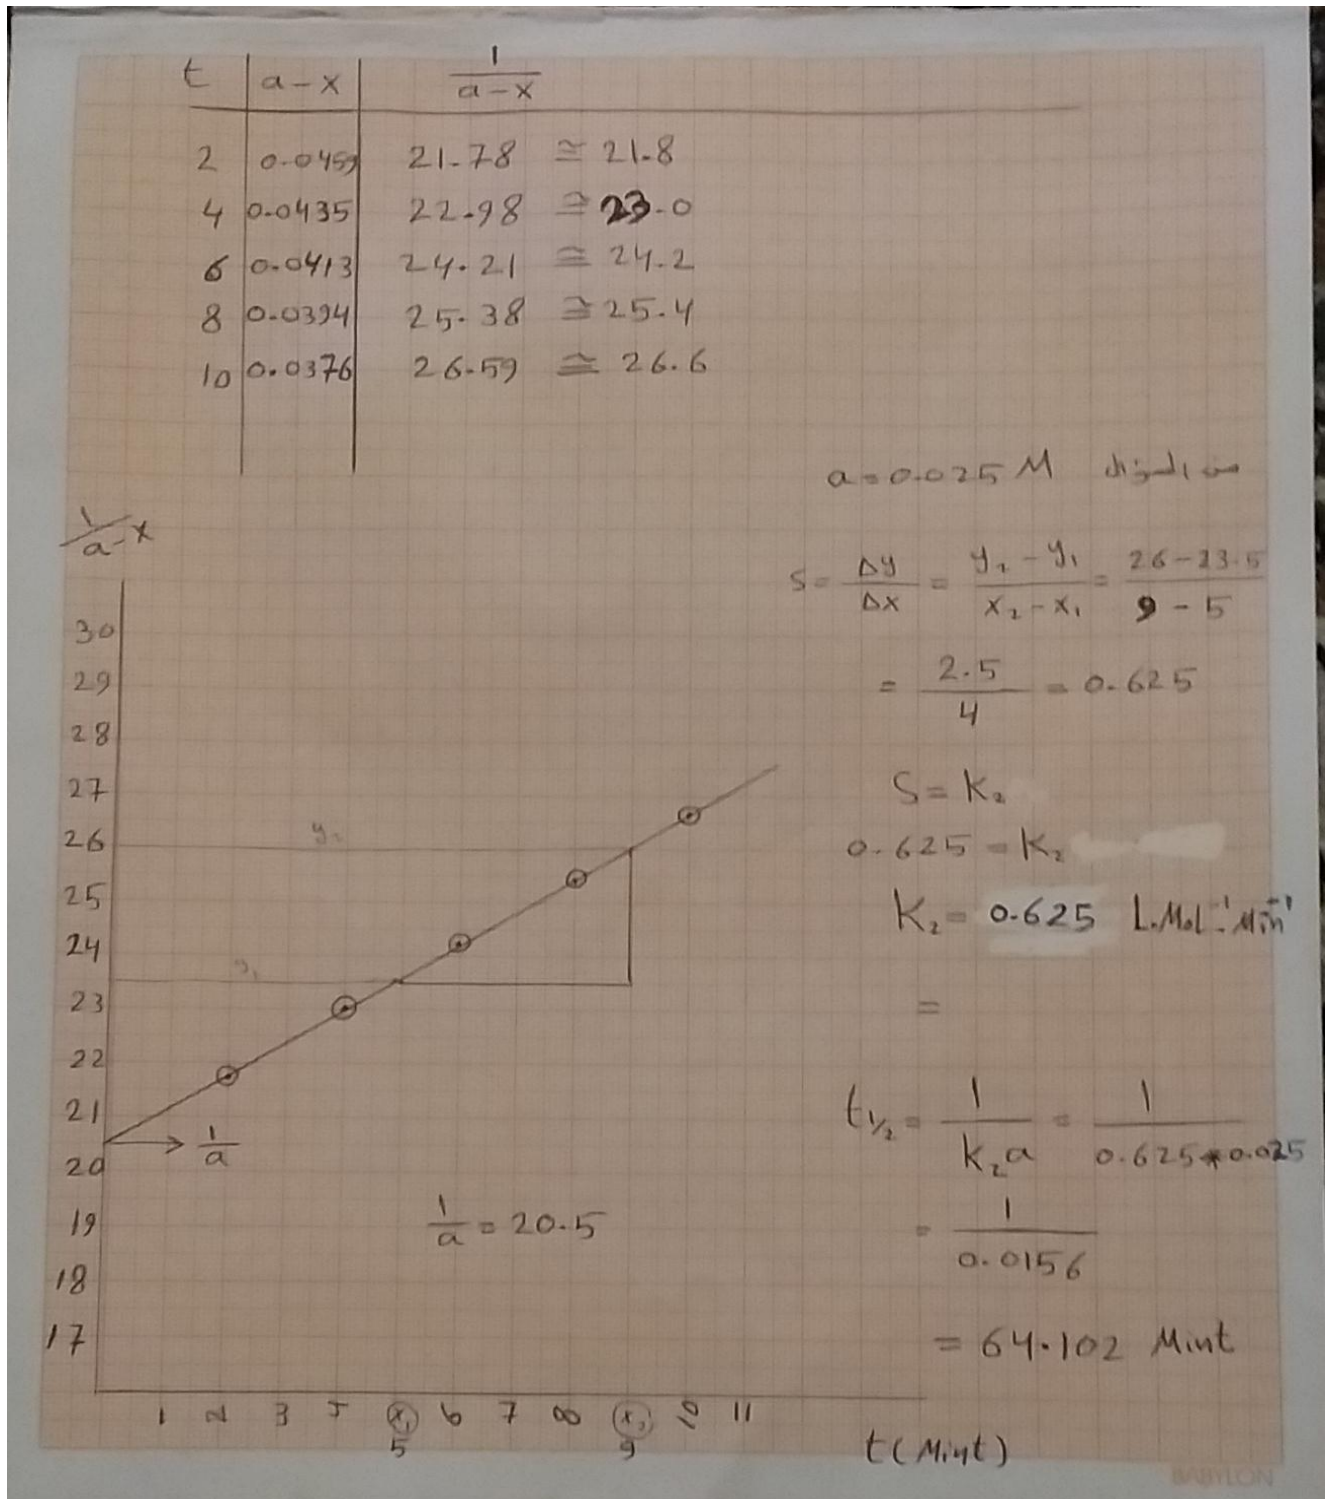 t a-x 1/a-x
2 0.0459 21.78 ≅ 21.8
4 0.0435 22.98 ≅ 23.0
6 0.0413 24.21 ≅ 24.2
8 0.0394 25.38 ≅ 25.4
10 0.0376 26.59 ≅ 26.6
a = 0.025 M من السؤال
S = Δy/Δx = y₂ - y₁/x₂ - x₁ = 26 - 23.5/9 - 5
= 2.5/4 = 0.625
S = K₂
0.625 = K₂
K₂ = 0.625 L.Mol⁻¹.Min⁻¹
=
t½ = 1/K₂a = 1/0.625*0.025
= 1/0.0156
= 64.102 Mint
1/a-x
30
29
28
27
26 y₂
25
24
y₁
23
22
21
1/a
20
19 1/a = 20.5
18
17
1 2 3 4 x₁ 6 7 8 x₂ 10 11
5 9
t (Mint)
BABYLON